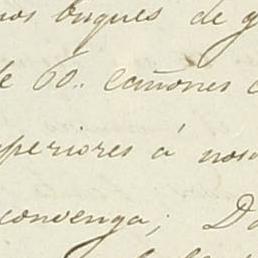 nos buques de g
de 60.. cañones c
uperiores á noso
convenga; Do